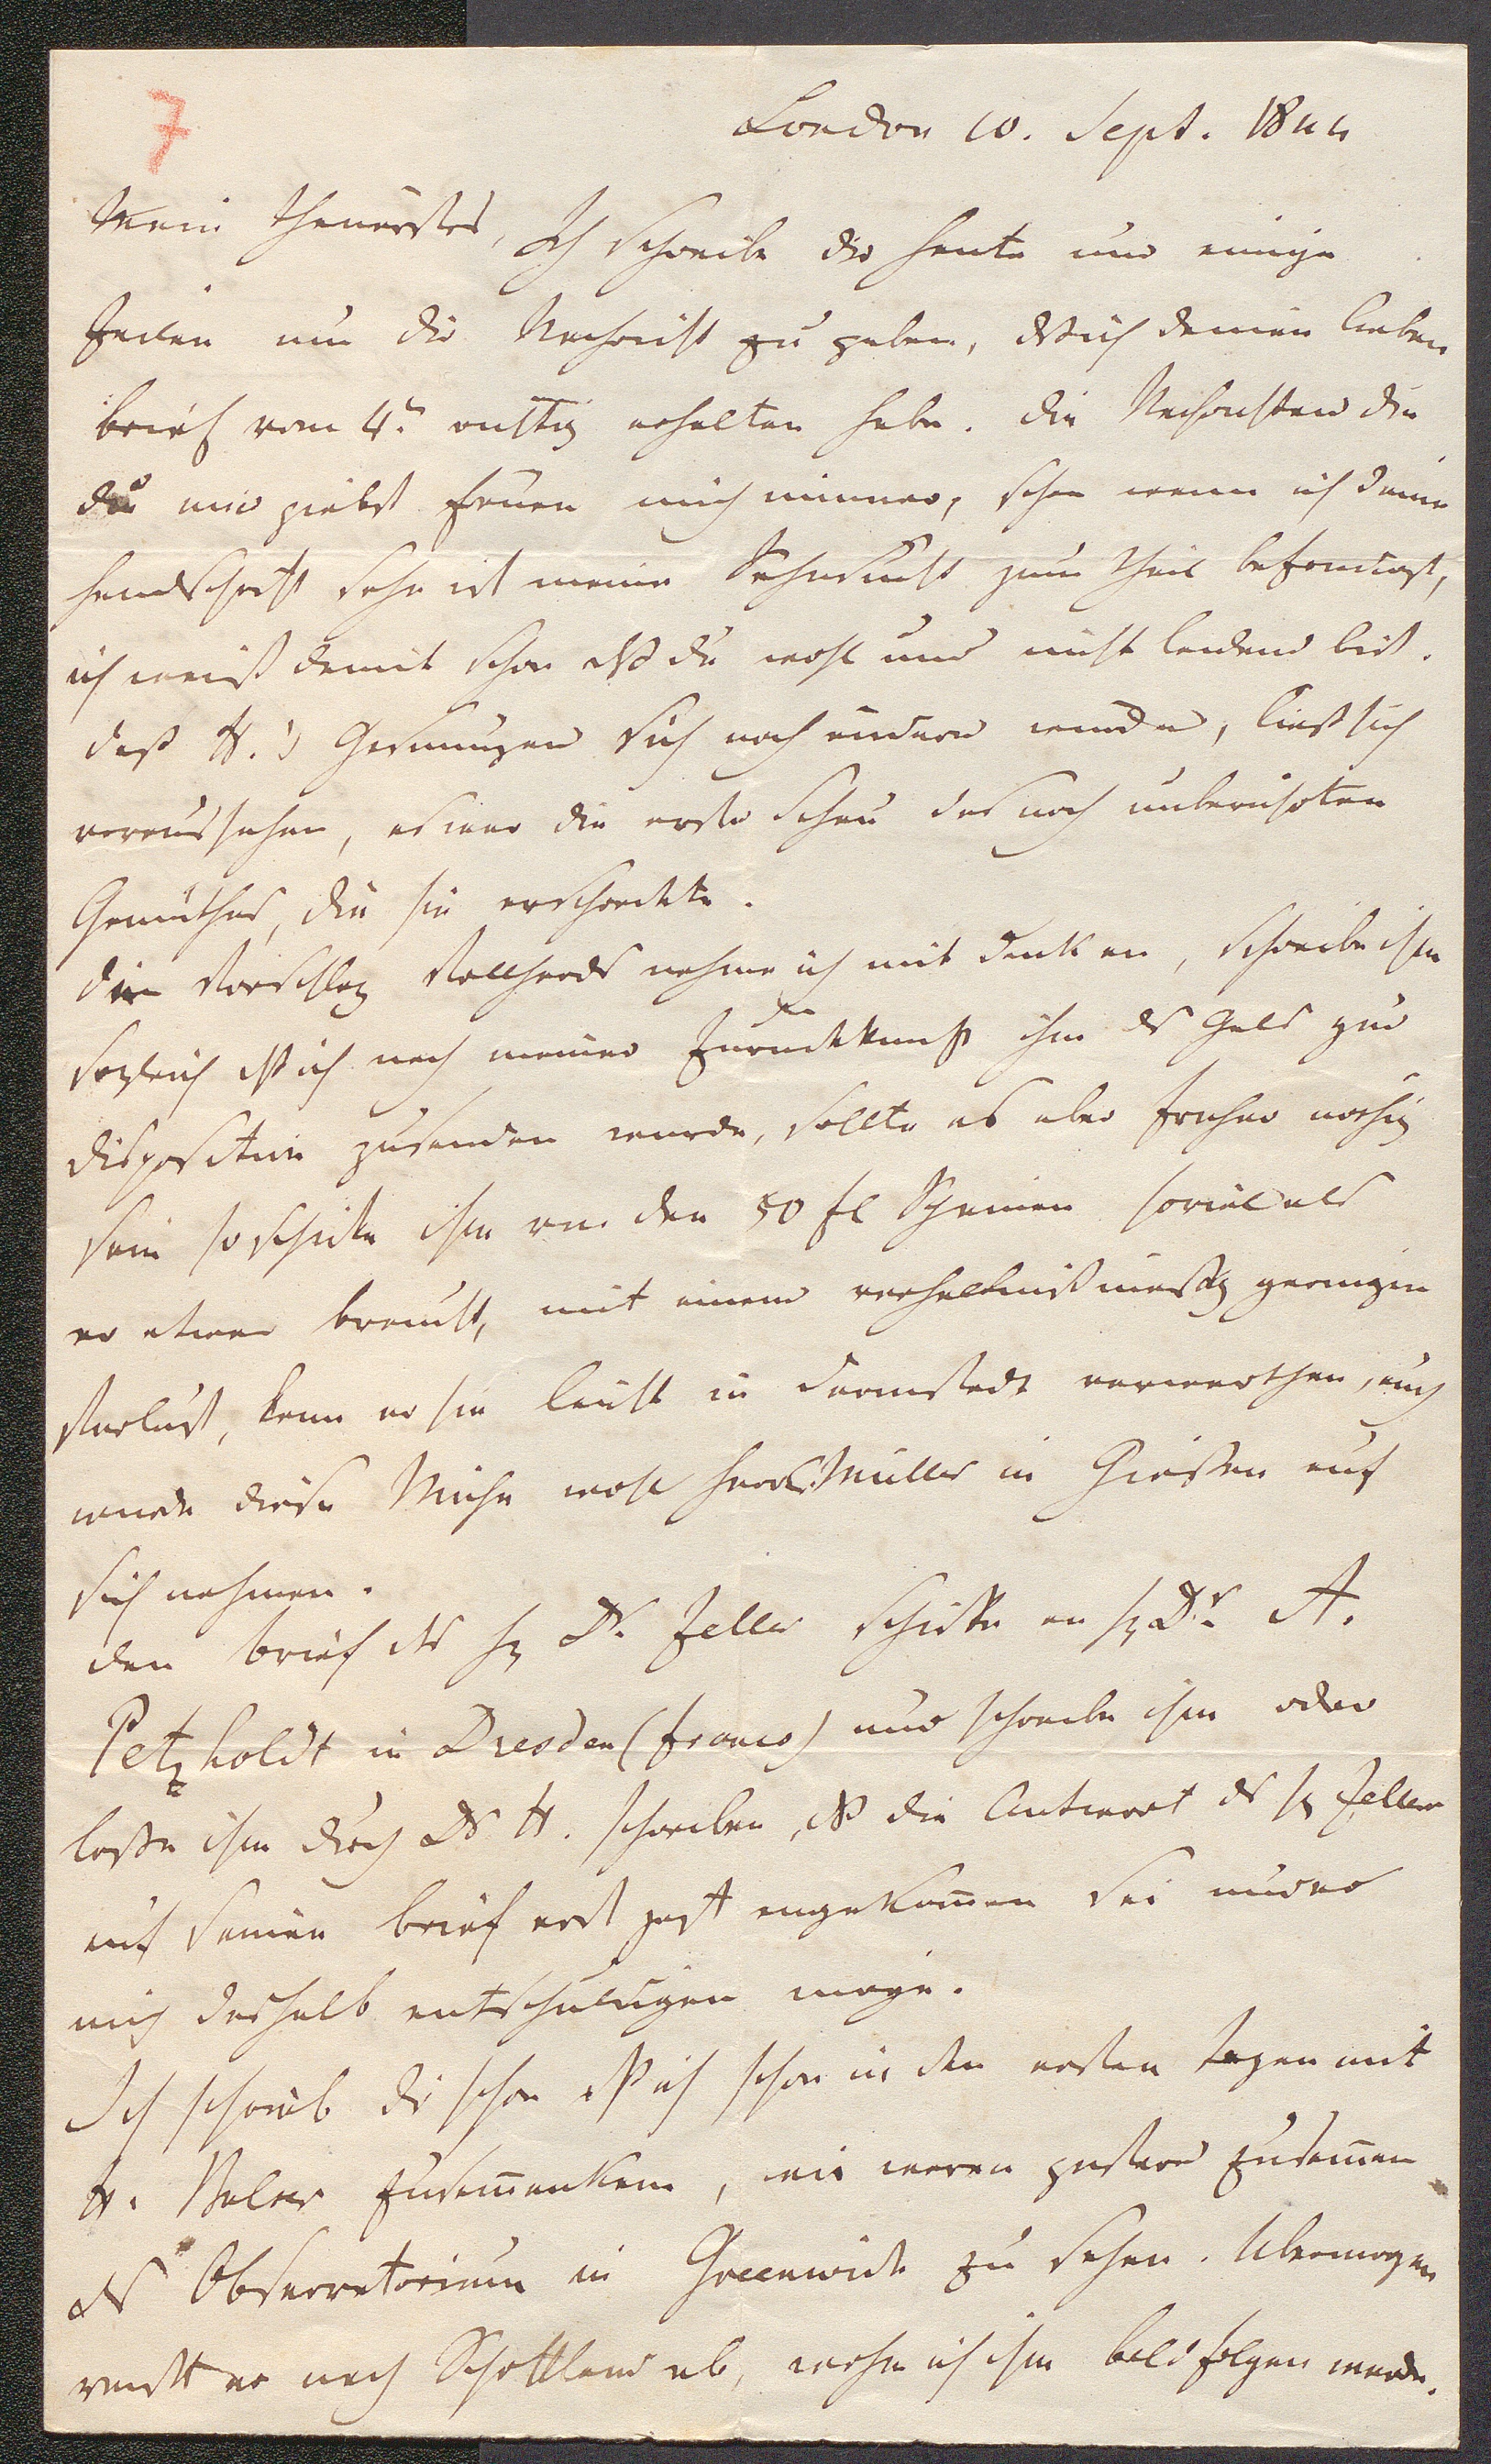 7
London 10. Sept. 1844
Mein theuerstes, Ich schreibe dir heute nur einige
Zeilen um dir Nachricht zu geben, dß ich deinen lieben
brief vom 4. richtig erhalten habe. die Nachrichten die
du mir giebst freuen mich immer, schon wenn ich deine
handschrift sehe ist meine Sehnsucht zum theil befriedigt,
ich weiß damit schon dß du wohl und nicht leidend bist.
daß A.'s Gesinnungen sich noch ändern würden, ließ sich
voraussehen, es war die erste Scheu des noch unberührten
Gemüthes, die sie erschreckte.
den Vorschlag Vollhards nehme ich mit dank an, schreibe ihm
sogleich dß ich nach meiner Zurückkunft ihm das Geld zur
disposition zusenden werde, sollte es aber früher nöthig
sein so schicke ihm von den 50 fl Scheinen soviel als
er etwa braucht, mit einem verhältnißmäßig geringen
Verlust, kann er sie leicht in darmstadt verwerthen, auch
würde diese Mühe wohl Herr Müller in Giessen auf
sich nehmen.
den brief des H. Dr. Zeller schicke an H. Dr. A.
Petzholdt in Dresden (franco) und schreibe ihm oder
lasse ihm durch Dr H. schreiben, dß die Antwort des H. Zeller
auf seinen brief erst jetzt angekommen sei und er
mich deshalb entschuldigen möge.
Ich schrieb dir schon dß ich schon in den ersten tagen mit
H. zusammenkam, wir waren gestern zusammen
das Observatorium in Greenwich zu sehen. Übermorgen
reist er nach Schottland ab, wohin ich ihm bald folgen werde.